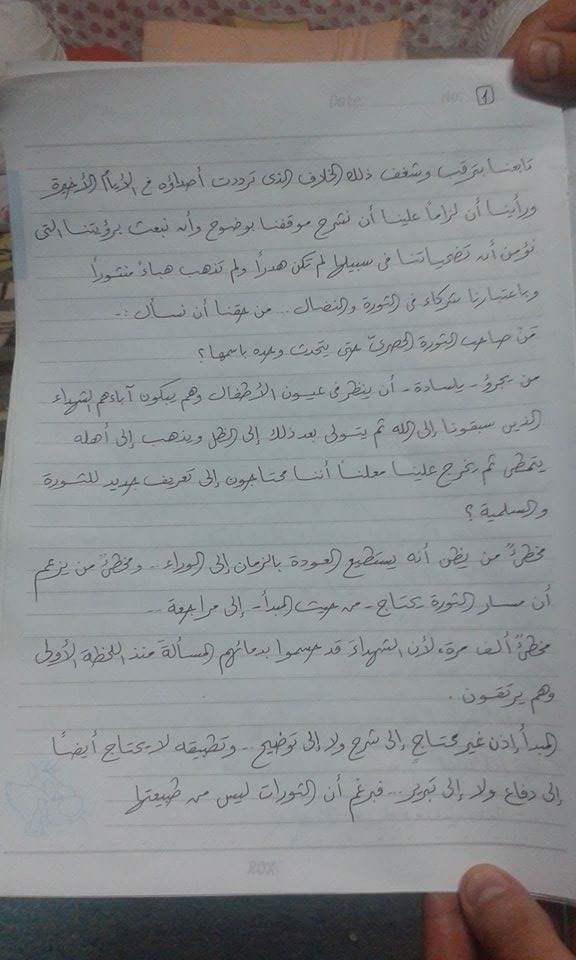 Date No. ١
تابعنا بترقب وشغف ذلك الخلاف الذى ترددت أصداؤه فى الأيام الأخيرة
ورأينا أن لزاماً علينا أن نشرح موقفنا بوضوح وأن نبعث برؤيتنا التى
نؤمن أن تضحياتنا فى سبيلها لم تكن هدراً ولم تذهب هباءً منثوراً
وباعتبارنا شركاء فى الثورة والنضال ... من حقنا أن نسأل :-
مَنْ صاحب الثورة الحصرىّ حتى يتحدث وحده باسمها؟
من يجرؤ - ياسادة - أن ينظر فى عيون الأطفال وهم يبكون آباءهم الشهداء
الذين سبقونا إلى الله ثم يتولى بعد ذلك إلى الظل ويذهب إلى أهله
يتمطى ثم يخرج علينا معلناً أننا محتاجون إلى تعريف جديد للثورة
والسلمية ؟
مخطئٌ من يظن أنه يستطيع العودة بالزمان إلى الوراء .. ومخطئٌ من يزعم
أن مسار الثورة يحتاج - من حيث المبدأ - إلى مراجعة ..
مخطئٌ ألف مرة، لأن الشهداءَ قد حسموا بدمائهم المسألة منذ اللحظة الأولى
وهم يرتقون .
المبدأ إذن غير محتاجٍ إلى شرح ولا إلى توضيح .. وتطبيقه لا يحتاج أيضاً
إلى دفاع ولا إلى تبرير ... فبرغم أن الثورات ليس من طبيعتها
ROX